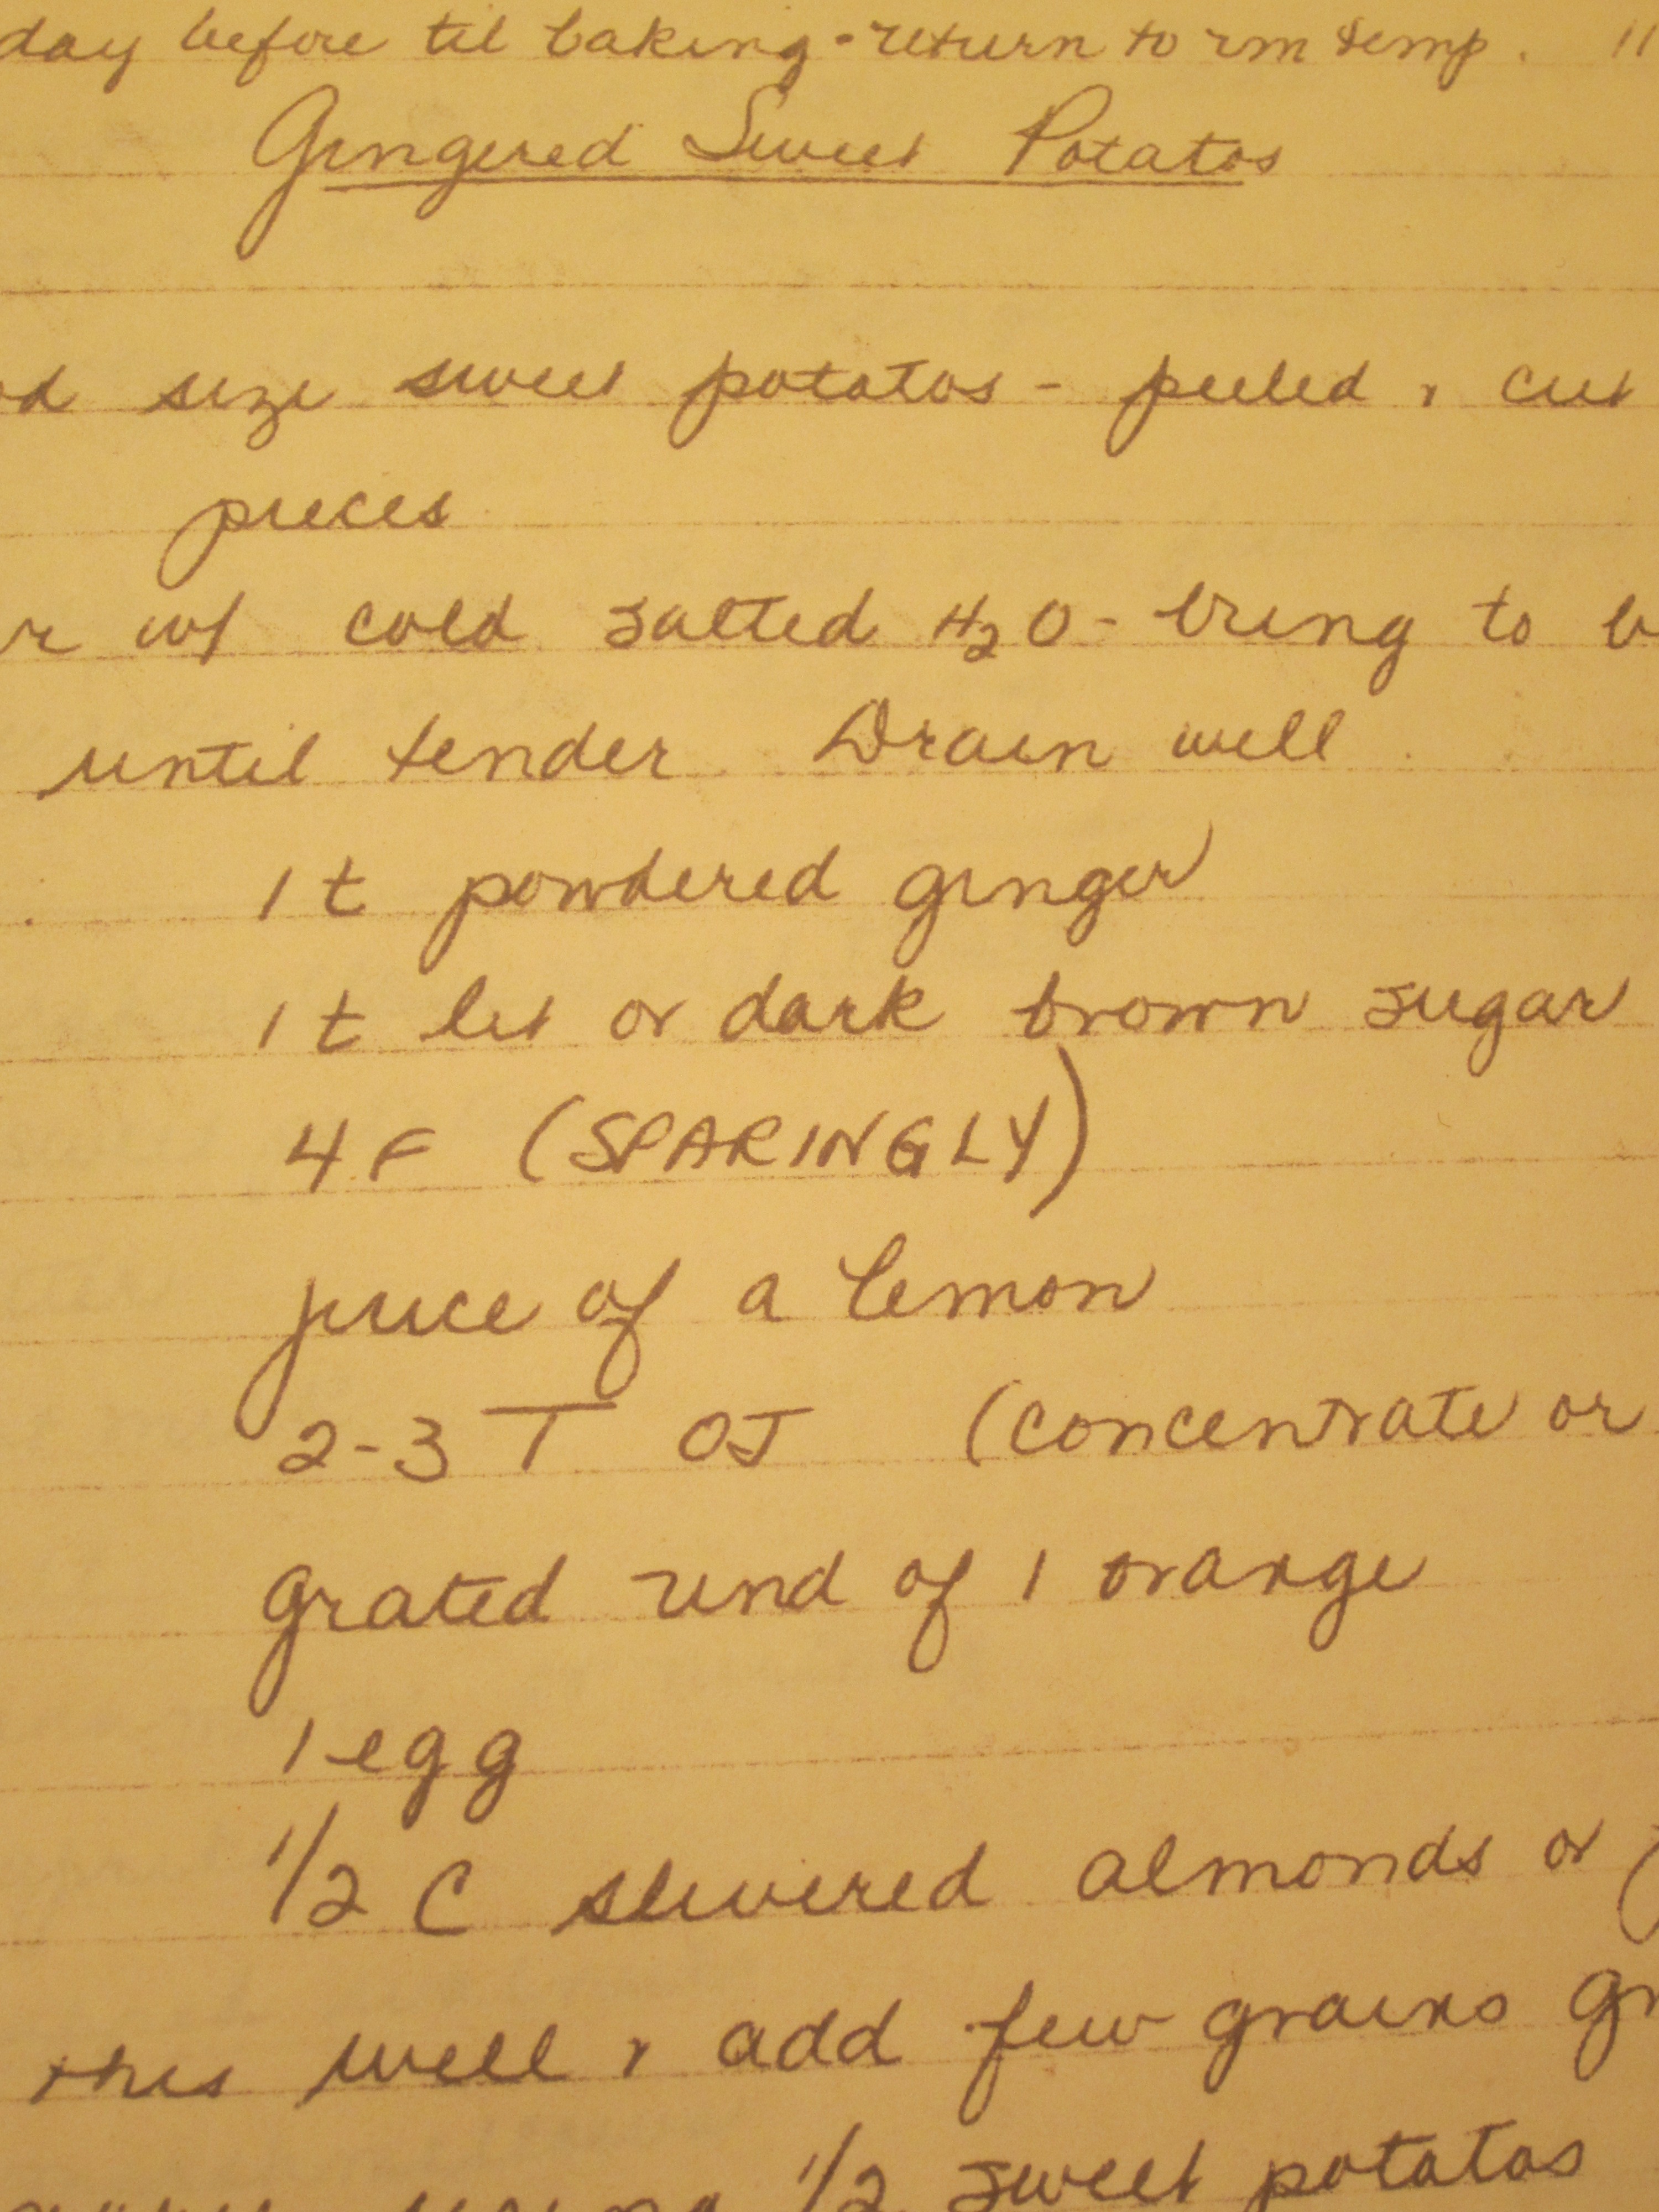 day before til baking - return to rm temp. 11
Gingered Sweet Potatos
size sweet potatos - peeled & cut
pieces
w/ cold salted H2O - bring to b
until tender Drain well
1 t powdered ginger
1 t lit or dark brown sugar
4 F (SPARINGLY)
juice of a lemon
2-3 T OJ (concentrate or
grated rind of 1 orange
1 egg
1/2 C slivered almonds or
this well & add few grains gr
1/2 sweet potatos